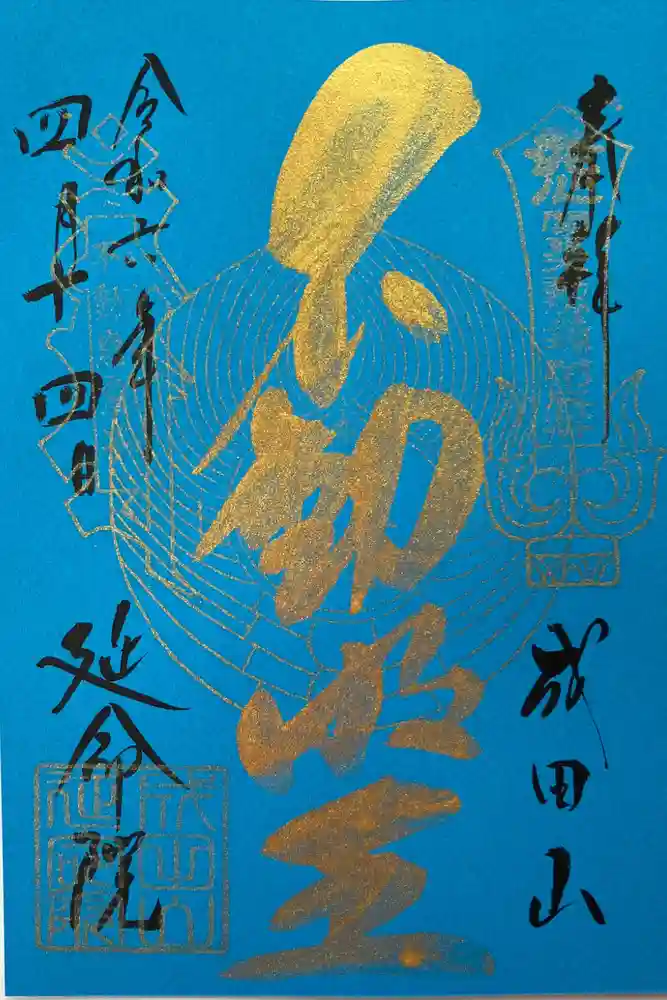 奉拝
成田山
不動明王
令和六年
四月十四日
延命院